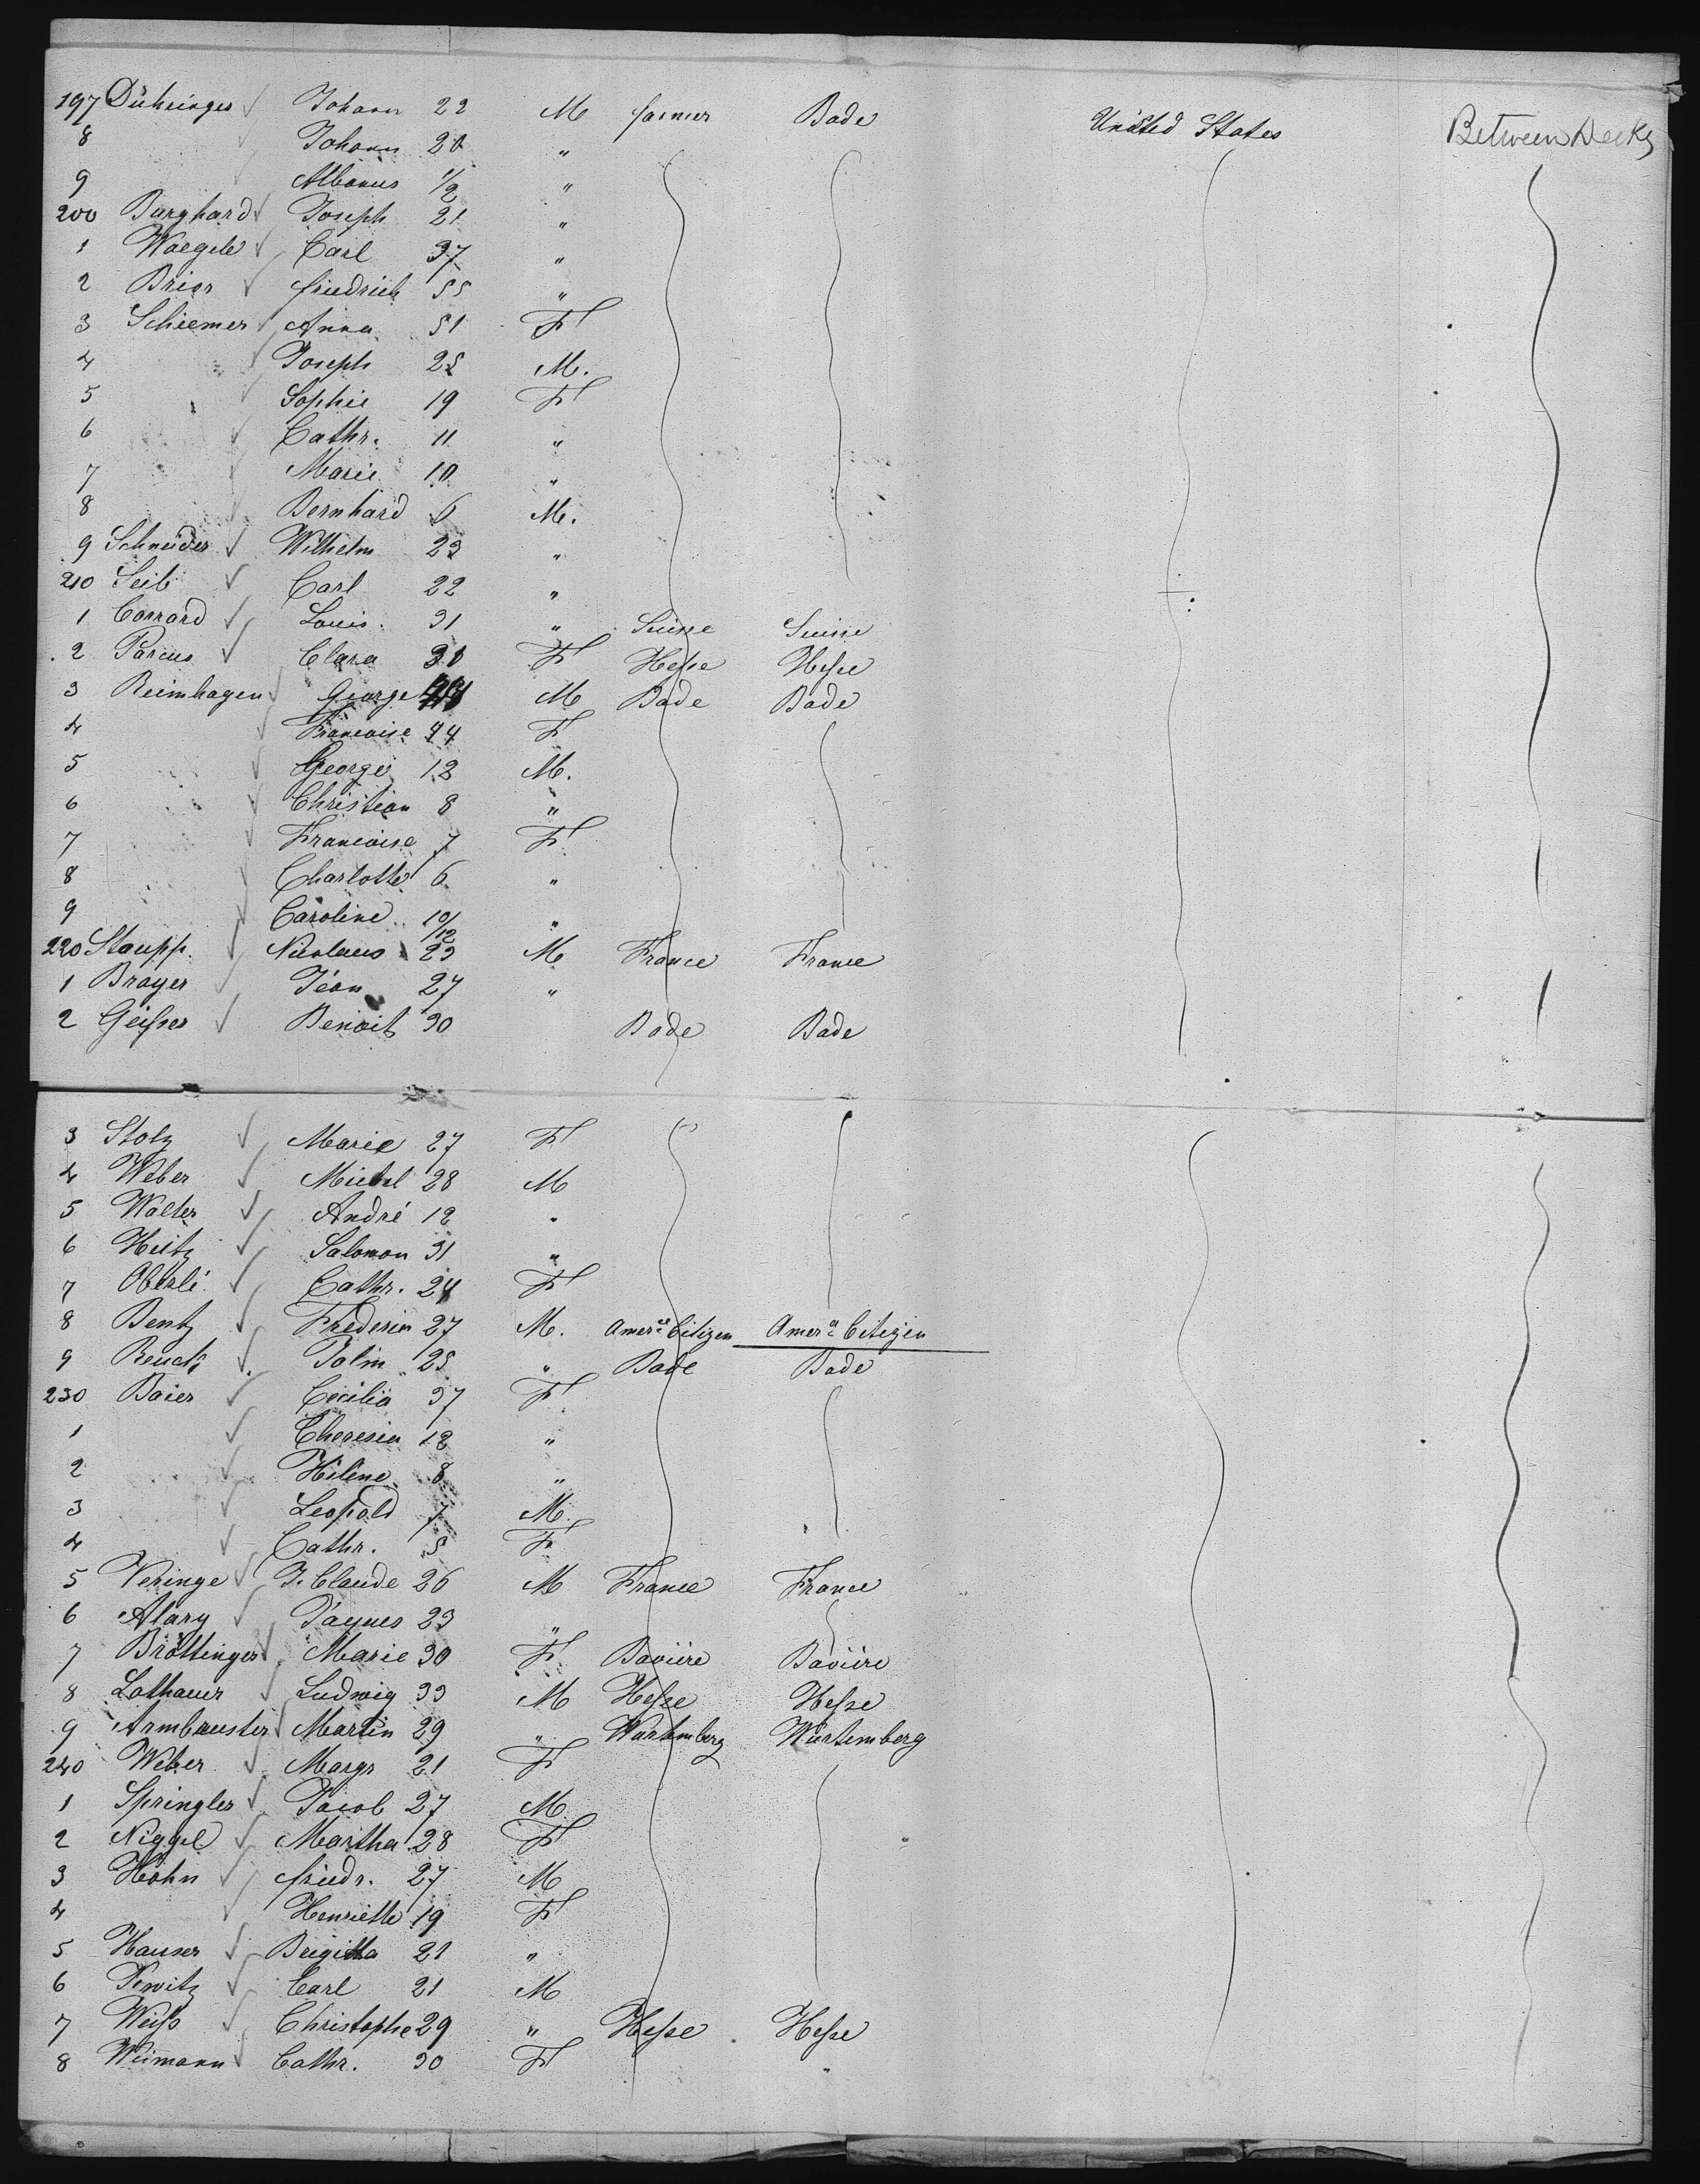 197 Dühringer Johann 22 M farmer Bade United States Between Decks
8 Johann 20 "
9 Albanus 1/2 "
200 Burghard Joseph 21 "
1 Waegele Carl 37 "
2 Brier friedrich 55 "
3 Schiemer Anna 51 F
4 Joseph 25 M.
5 Sophie 19 F
6 Cathr. 11 "
7 Marie 10 "
8 Bernhard 6 M.
9 Schneider Wilhelm 23 "
210 Seib Carl 22 "
1 Conrard Louis. 31 " Suisse Suisse
2 Parcus Clara 30 F Hesse Hesse
3 Reimhagen George M Bade Bade
4 Francoise 44 F
5 George 12 M.
6 Christian 8 "
7 Francoise 7 F
8 Charlotte 6 "
9 Caroline 10/12 "
220 Staupp. Nicolaus 23 M France France
1 Brayer Jéan 27 "
2 Geisser Benoit 30 Bade Bade
3 Stolz Marie 27 F
4 Weber Michel 28 M
5 Walter André 12 "
6 Heitz Salomon 31 "
7 Oberlé Cathr. 24 F
8 Bentz Frederic 27 M. Amer Citizen Amer Citizen
9 Reuck Jolin 25 " Bade Bade
230 Baier Cecilia 37 F
1 Theresia 12 "
2 Hélene 8 "
3 Leopold 7 M.
4 Cathr. 5 F
5 Veringe J. Claude 26 M France France
6 Alary Jaques 23 "
7 Bröttinger Marie 30 F Baviére Baviére
8 Lothauer Ludwig 33 M Hesse Hesse
9 Armbauster Martin 29 " Wurtemberg Würtemberg
240 Weber Margr 21 F
1 Springler Jacob 27 M
2 Niggel Martha 28 F
3 Höhn friedr. 27 M
4 Henriette 19 F
5 Hauser Brigitta 21 "
6 Carl 21 M
7 Weiss Christophe 29 " Hesse Hesse
8 Weimann Cathr. 30 F "